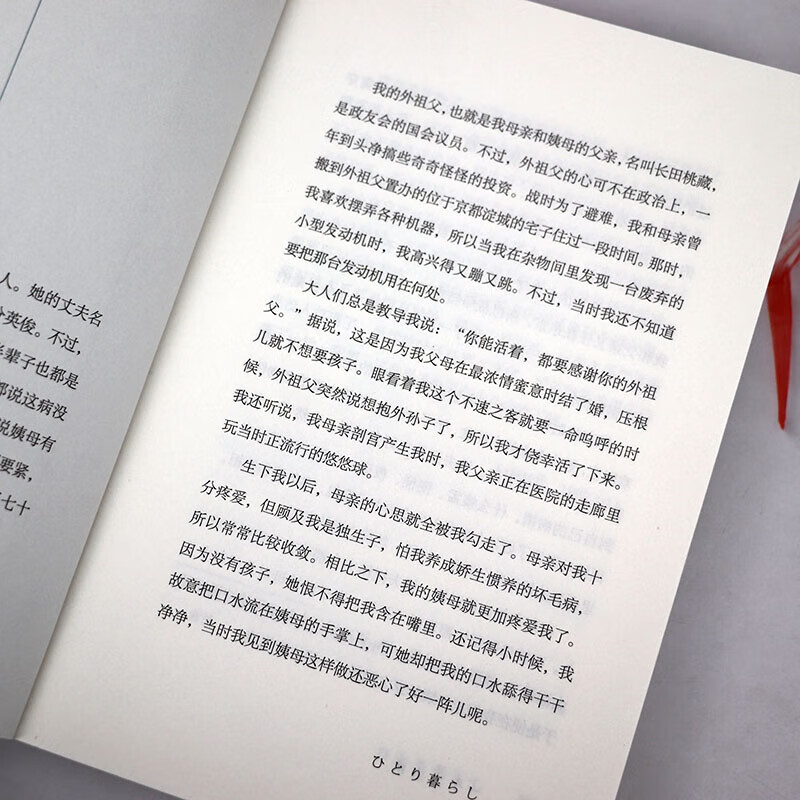 人。她的丈夫名
分英俊。不过，
半辈子也都是
都说这病没
说姨母有
要紧，
七十
我的外祖父，也就是我母亲和姨母的父亲，名叫长田桃藏，
是政友会的国会议员。不过，外祖父的心可不在政治上，一
年到头净搞些奇奇怪怪的投资。战时为了避难，我和母亲曾
搬到外祖父置办的位于京都淀城的宅子住过一段时间。那时，
我喜欢摆弄各种机器，所以当我在杂物间里发现一台废弃的
小型发动机时，我高兴得又蹦又跳。不过，当时我还不知道
要把那台发动机用在何处。
大人们总是教导我说：“你能活着，都要感谢你的外祖
父。”据说，这是因为我父母在最浓情蜜意时结了婚，压根
儿就不想要孩子。眼看着我这个不速之客就要一命呜呼的时
候，外祖父突然说想抱外孙子了，所以我才侥幸活了下来。
我还听说，我母亲剖宫产生我时，我父亲正在医院的走廊里
玩当时正流行的悠悠球。
生下我以后，母亲的心思就全被我勾走了。母亲对我十
分疼爱，但顾及我是独生子，怕我养成娇生惯养的坏毛病，
所以常常比较收敛。相比之下，我的姨母就更加疼爱我了。
因为没有孩子，她恨不得把我含在嘴里。还记得小时候，我
故意把口水流在姨母的手掌上，可她却把我的口水舔得干干
净净，当时我见到姨母这样做还恶心了好一阵儿呢。
ひとり暮らし